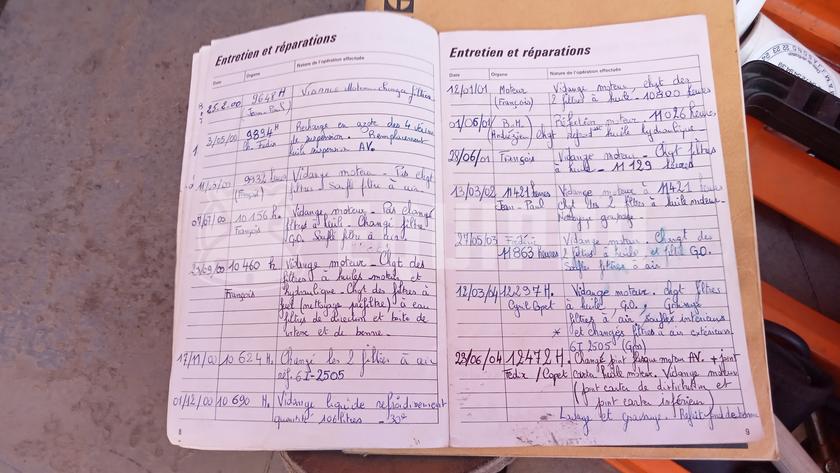 Entretien et réparations
Date Organe Nature de l'opération effectuée
25.2.00 9648 H Vidange Moteur changer filtres
(Jean Paul)
3/05/00 9894 H Recharge en azote des 4
de suspension. Remplacement
huile suspension AV.
Vidange moteur - Pas chgt
(François) filtres - Soufflé filtre à air
07/07/00 10156 h. Vidange moteur - Pas changé
François filtres à huile - Changé filtre
G.O. Soufflé filtre à air
10460 h Vidange moteur - Chgt des
filtres à huiles moteur et
François hydraulique - Chgt des filtres à
(nettoyage préfiltre) à eau
filtres de direction et boîte de
vitesse et de benne.
17/11/00 10624 H. Changé les 2 filtres à air
réf. 6I-2505
01/12/00 10690 H. Vidange liquide refroidissement
quantité 106 litres - 30°
8
Entretien et réparations
Date Organe Nature de l'opération effectuée
12/01/01 Moteur Vidange moteur, chgt des
(François) 2 filtres à huile - 10800 heures
01/06/01 B.M. Réfection moteur 11026 heures
chgt huile hydraulique
28/06/01 François Vidange moteur - Chgt filtres
à huile - 11129 heures
13/03/02 11421 heures Vidange moteur à 11421 heures
Jean-Paul chgt les 2 filtres à huile moteur.
Nettoyage
27/05/03 Frédéric Vidange moteur. Changt des
11863 heures 2 filtres à huile et filtre G.O.
Soufflé filtres à air
12/03/04 12297 H. Vidange moteur. chgt filtres
Cyril à huile G.O., Graissage
filtres à air, soufflés intérieurs
* et changés filtres à air extérieurs
6I 2505
23/06/04 12472 H. Changé joint moteur AV. + joint
carter huile moteur. Vidange moteur
(joint carter de distribution et
joint carter inférieur)
Lavage et graissage. Refait fond de benne
9